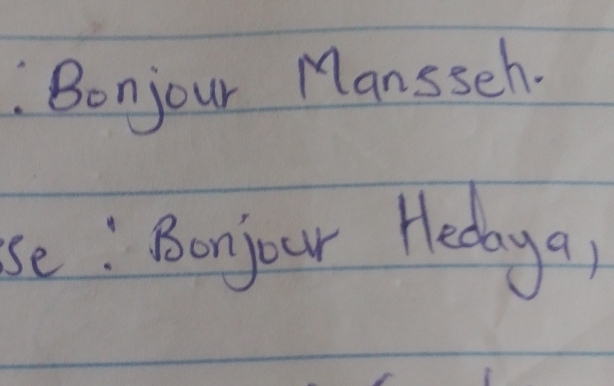 : Bonjour Mansseh.
sse : Bonjour Hedaya,